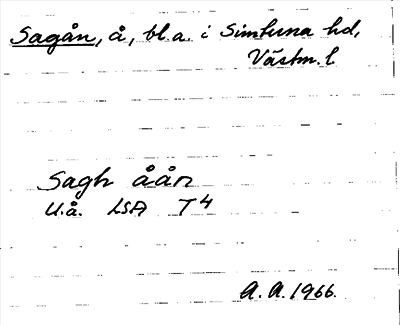 Sagån, å, bl.a. i Simtuna hd,
Västm. l.
Sagh åån
U.å. LSA T4
A.A. 1966.